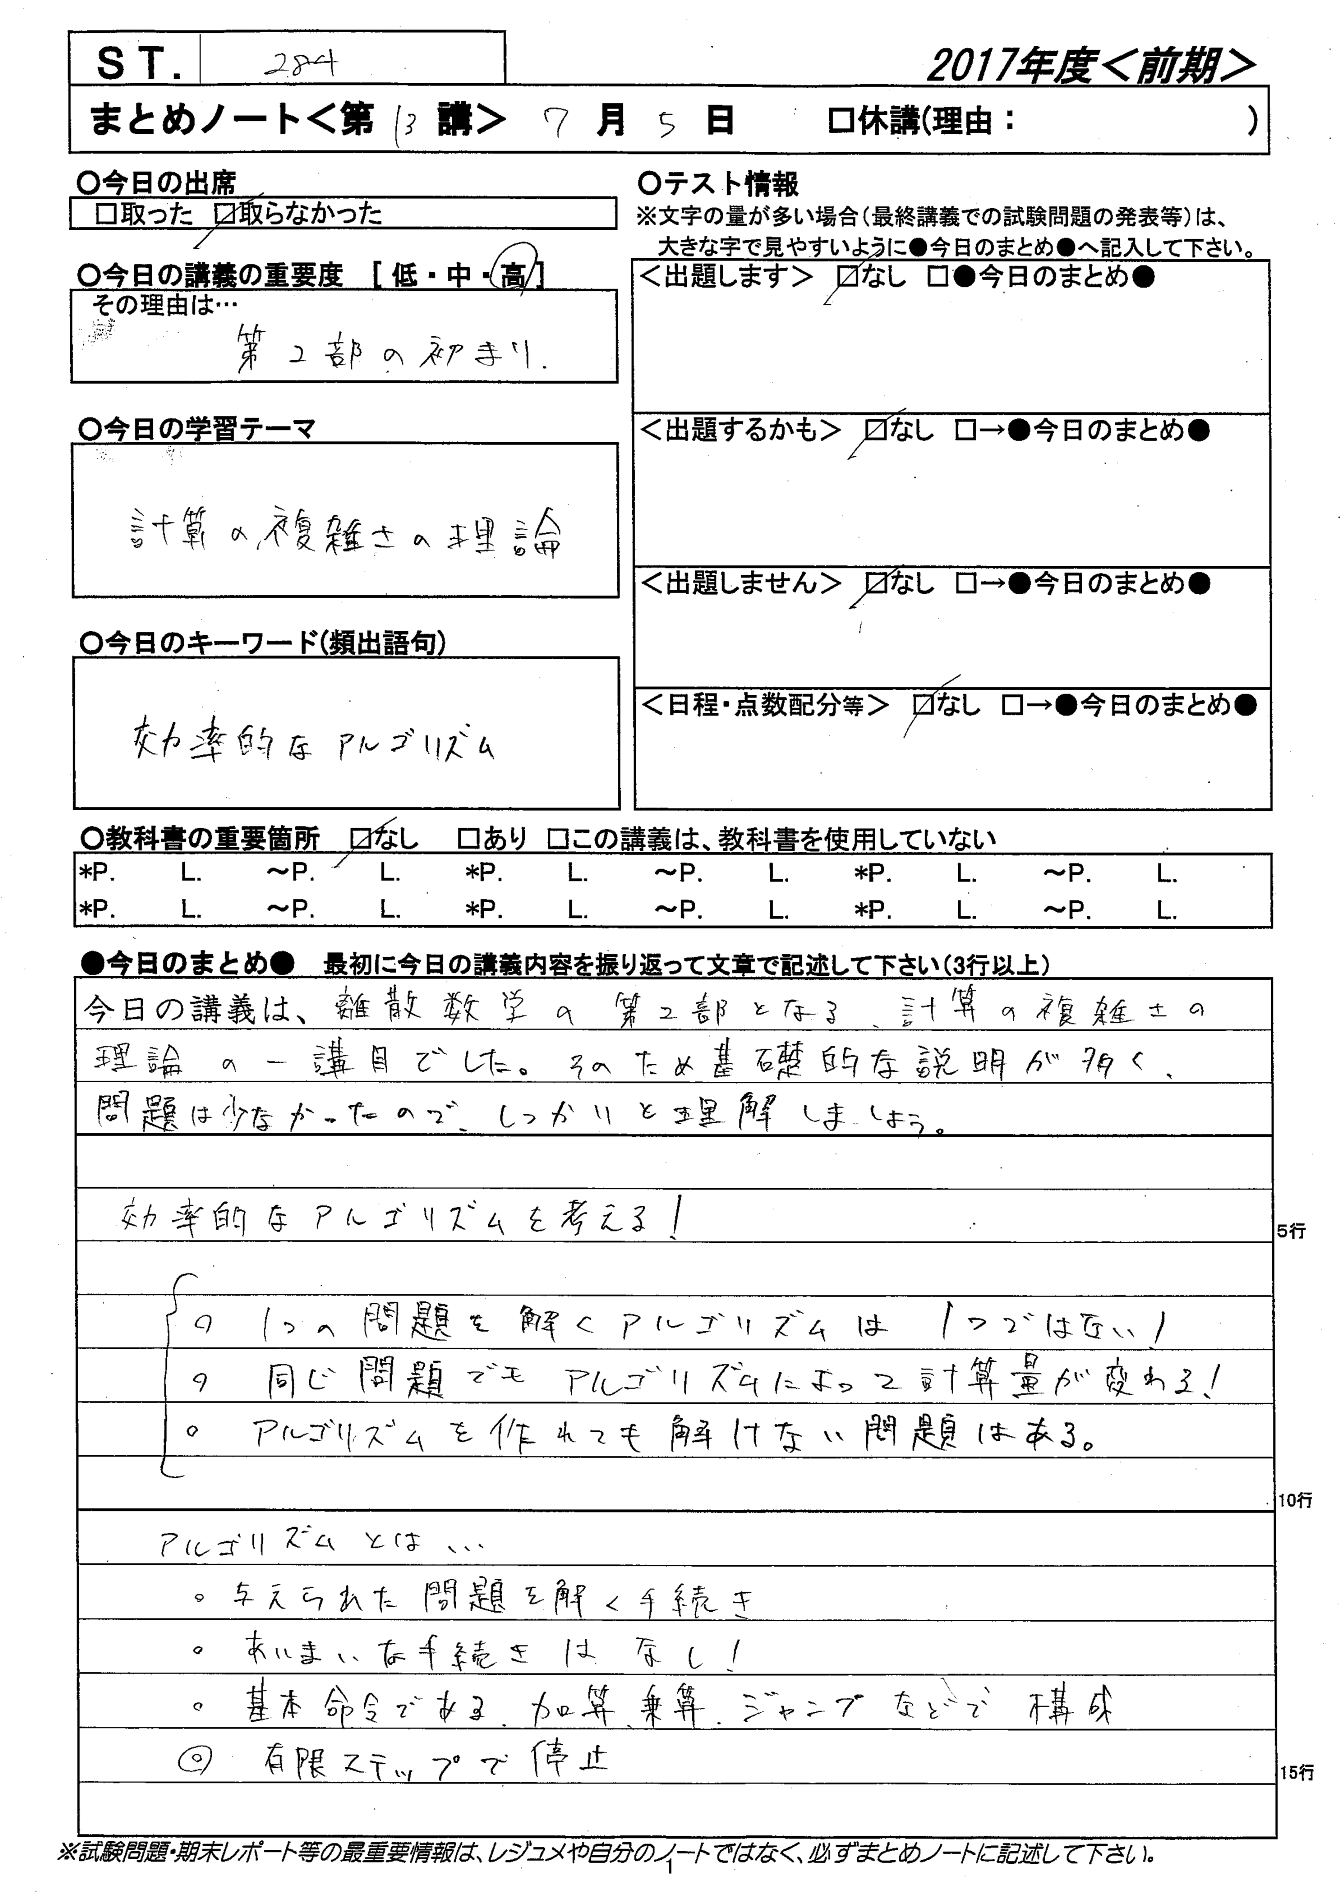 ST. 284
2017年度＜前期＞
まとめノート＜第 13 講＞ 7 月 5 日 □休講(理由： )
○今日の出席
□取った ☑取らなかった
○今日の講義の重要度 [ 低・中・高 ]
その理由は…
第2部の初まり.
○今日の学習テーマ
計算の複雑さの理論
○今日のキーワード(頻出語句)
効率的なアルゴリズム
○テスト情報
※文字の量が多い場合(最終講義での試験問題の発表等)は、
大きな字で見やすいように●今日のまとめ●へ記入して下さい。
＜出題します＞ ☑なし □●今日のまとめ●
＜出題するかも＞ ☑なし □→●今日のまとめ●
＜出題しません＞ ☑なし □→●今日のまとめ●
＜日程・点数配分等＞ ☑なし □→●今日のまとめ●
○教科書の重要箇所 ☑なし □あり □この講義は、教科書を使用していない
*P. L. ～P. L. *P. L. ～P. L. *P. L. ～P. L.
*P. L. ～P. L. *P. L. ～P. L. *P. L. ～P. L.
●今日のまとめ● 最初に今日の講義内容を振り返って文章で記述して下さい(3行以上)
今日の講義は、離散数学の第2部となる、計算の複雑さの
理論の一講目でした。そのため基礎的な説明が多く、
問題は少なかったので、しっかりと理解しましょう。
効率的なアルゴリズムを考える!
5行
○ 1つの問題を解くアルゴリズムは1つではない!
○ 同じ問題でもアルゴリズムによって計算量が変わる!
○ アルゴリズムを作れても解けない問題はある。
10行
アルゴリズムとは...
○ 与えられた問題を解く手続き
○ あいまいな手続きはなし!
○ 基本命令である、加算、乗算、ジャンプなどで構成
◎ 有限ステップで停止
15行
※試験問題・期末レポート等の最重要情報は、レジュメや自分のノートではなく、必ずまとめノートに記述して下さい。
1